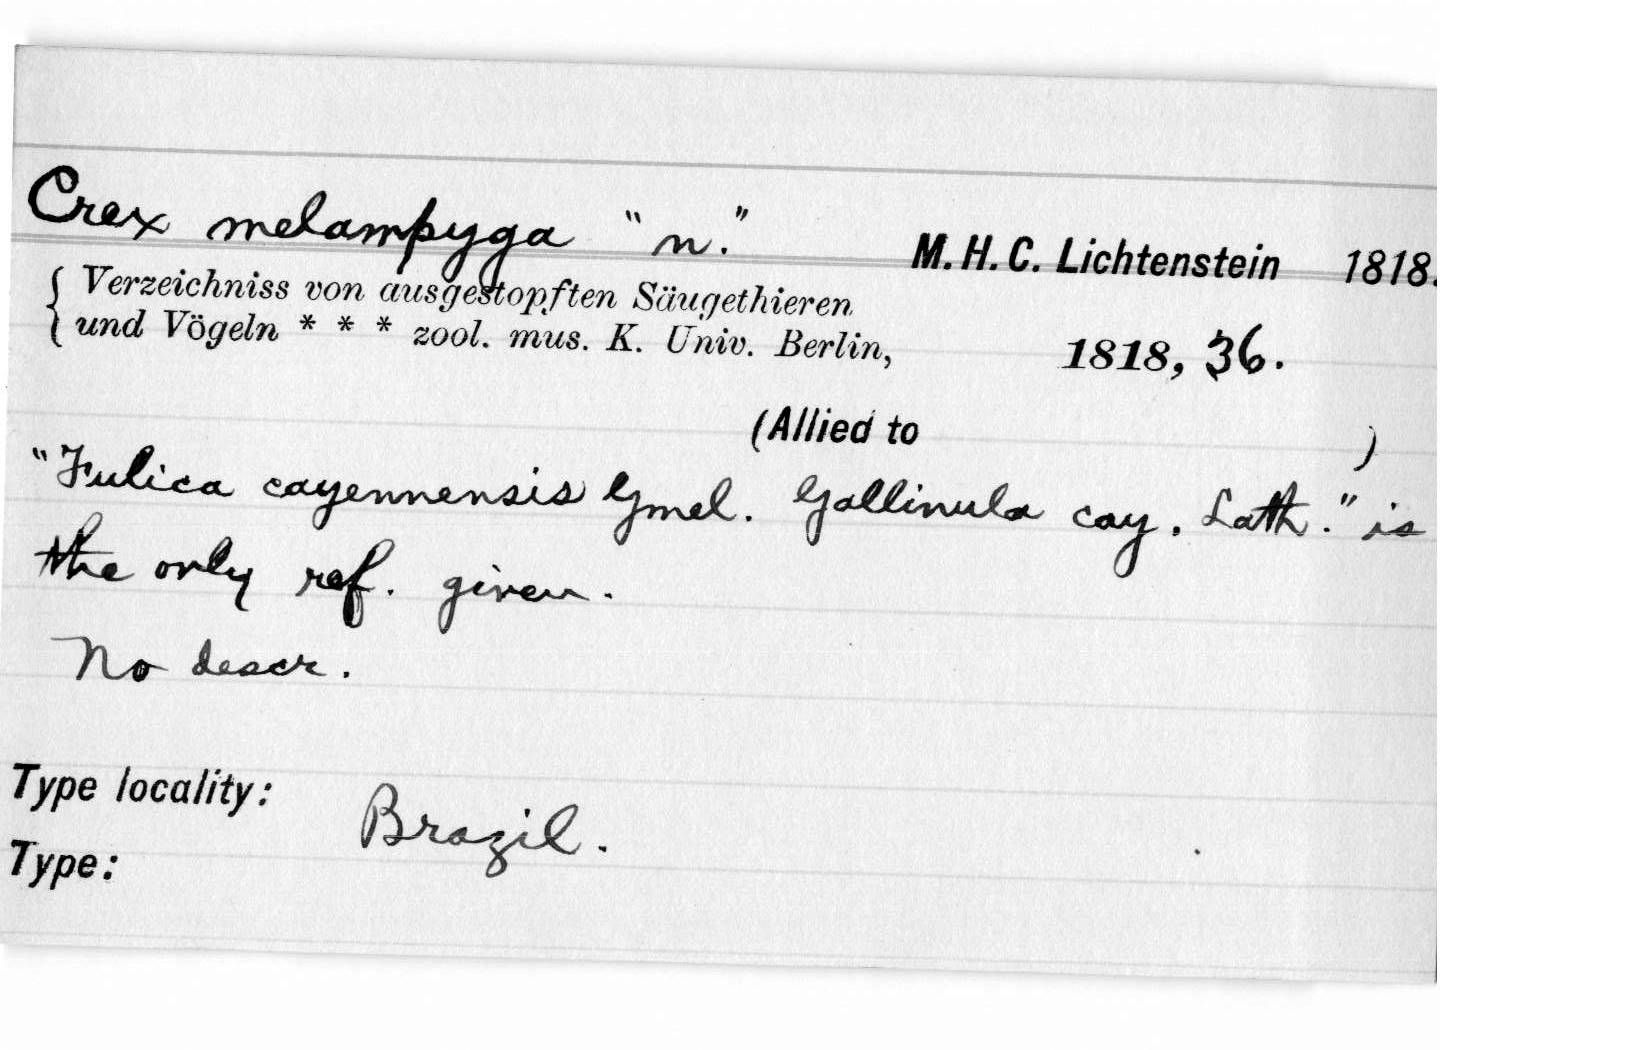 Crex melampyga "n." M. H. C. Lichtenstein 1818.
{ Verzeichniss von ausgestopften Säugethieren
und Vögeln * * * zool. mus. K. Univ. Berlin, 1818, 36.
(Allied to )
"Fulica cayennensis Gmel. Gallinula cay. Lath." is
the only ref. given.
No descr.
Type locality: Brazil.
Type: